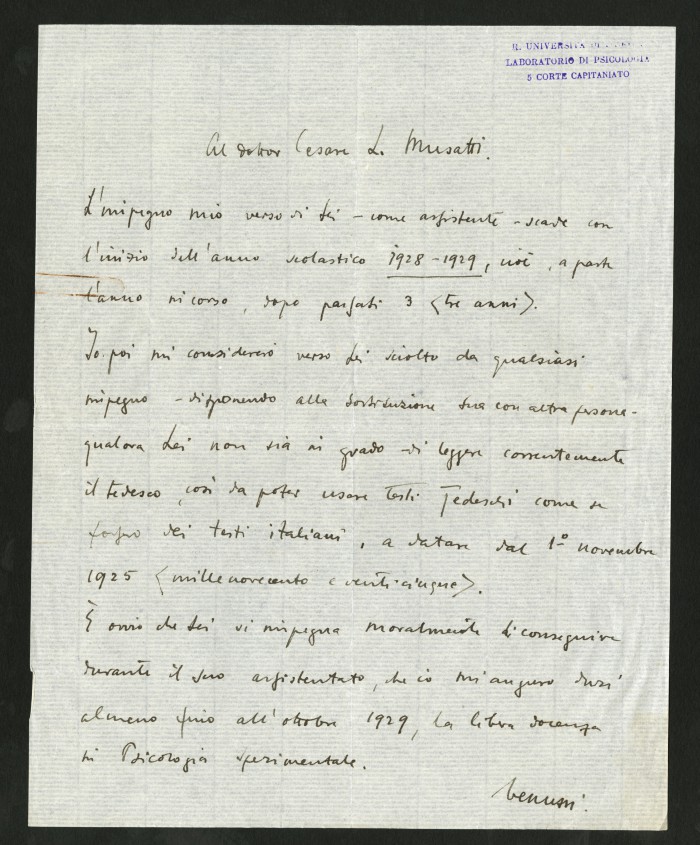 R. UNIVERSITÀ DI
LABORATORIO DI PSICOLOGIA
5 CORTE CAPITANIATO
Al dottor Cesare L. Musatti.
L'impegno mio verso di Lei – come assistente – scade con
l'inizio dell'anno scolastico 1928-1929, cioè, a parte
l'anno in corso, dopo passati 3 <tre anni>.
Io poi mi considererò verso Lei sciolto da qualsiasi
impegno – disponendo alla sostituzione sua con altra persona –
qualora Lei non sia in grado di leggere correntemente
il tedesco, così da poter usare testi Tedeschi come se
fossero dei testi italiani, a datare dal 1º novembre
1925 <mille novecento e venticinque>.
È ovvio che Lei si impegna moralmente di conseguire
durante il suo assistentato, che io mi auguro duri
almeno fino all'ottobre 1929, la libera docenza
in Psicologia sperimentale.
Benussi.